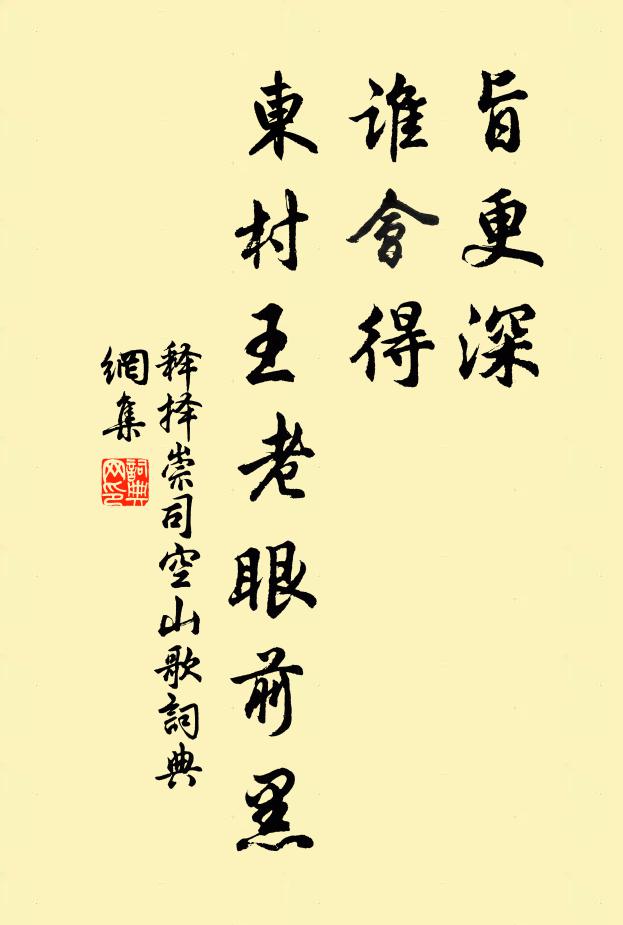 旨更深
誰會得
東村王老眼前黑
释择崇司空山歌詞典
網集
詞典
网印